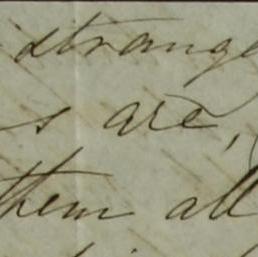 strange
s are,
them all